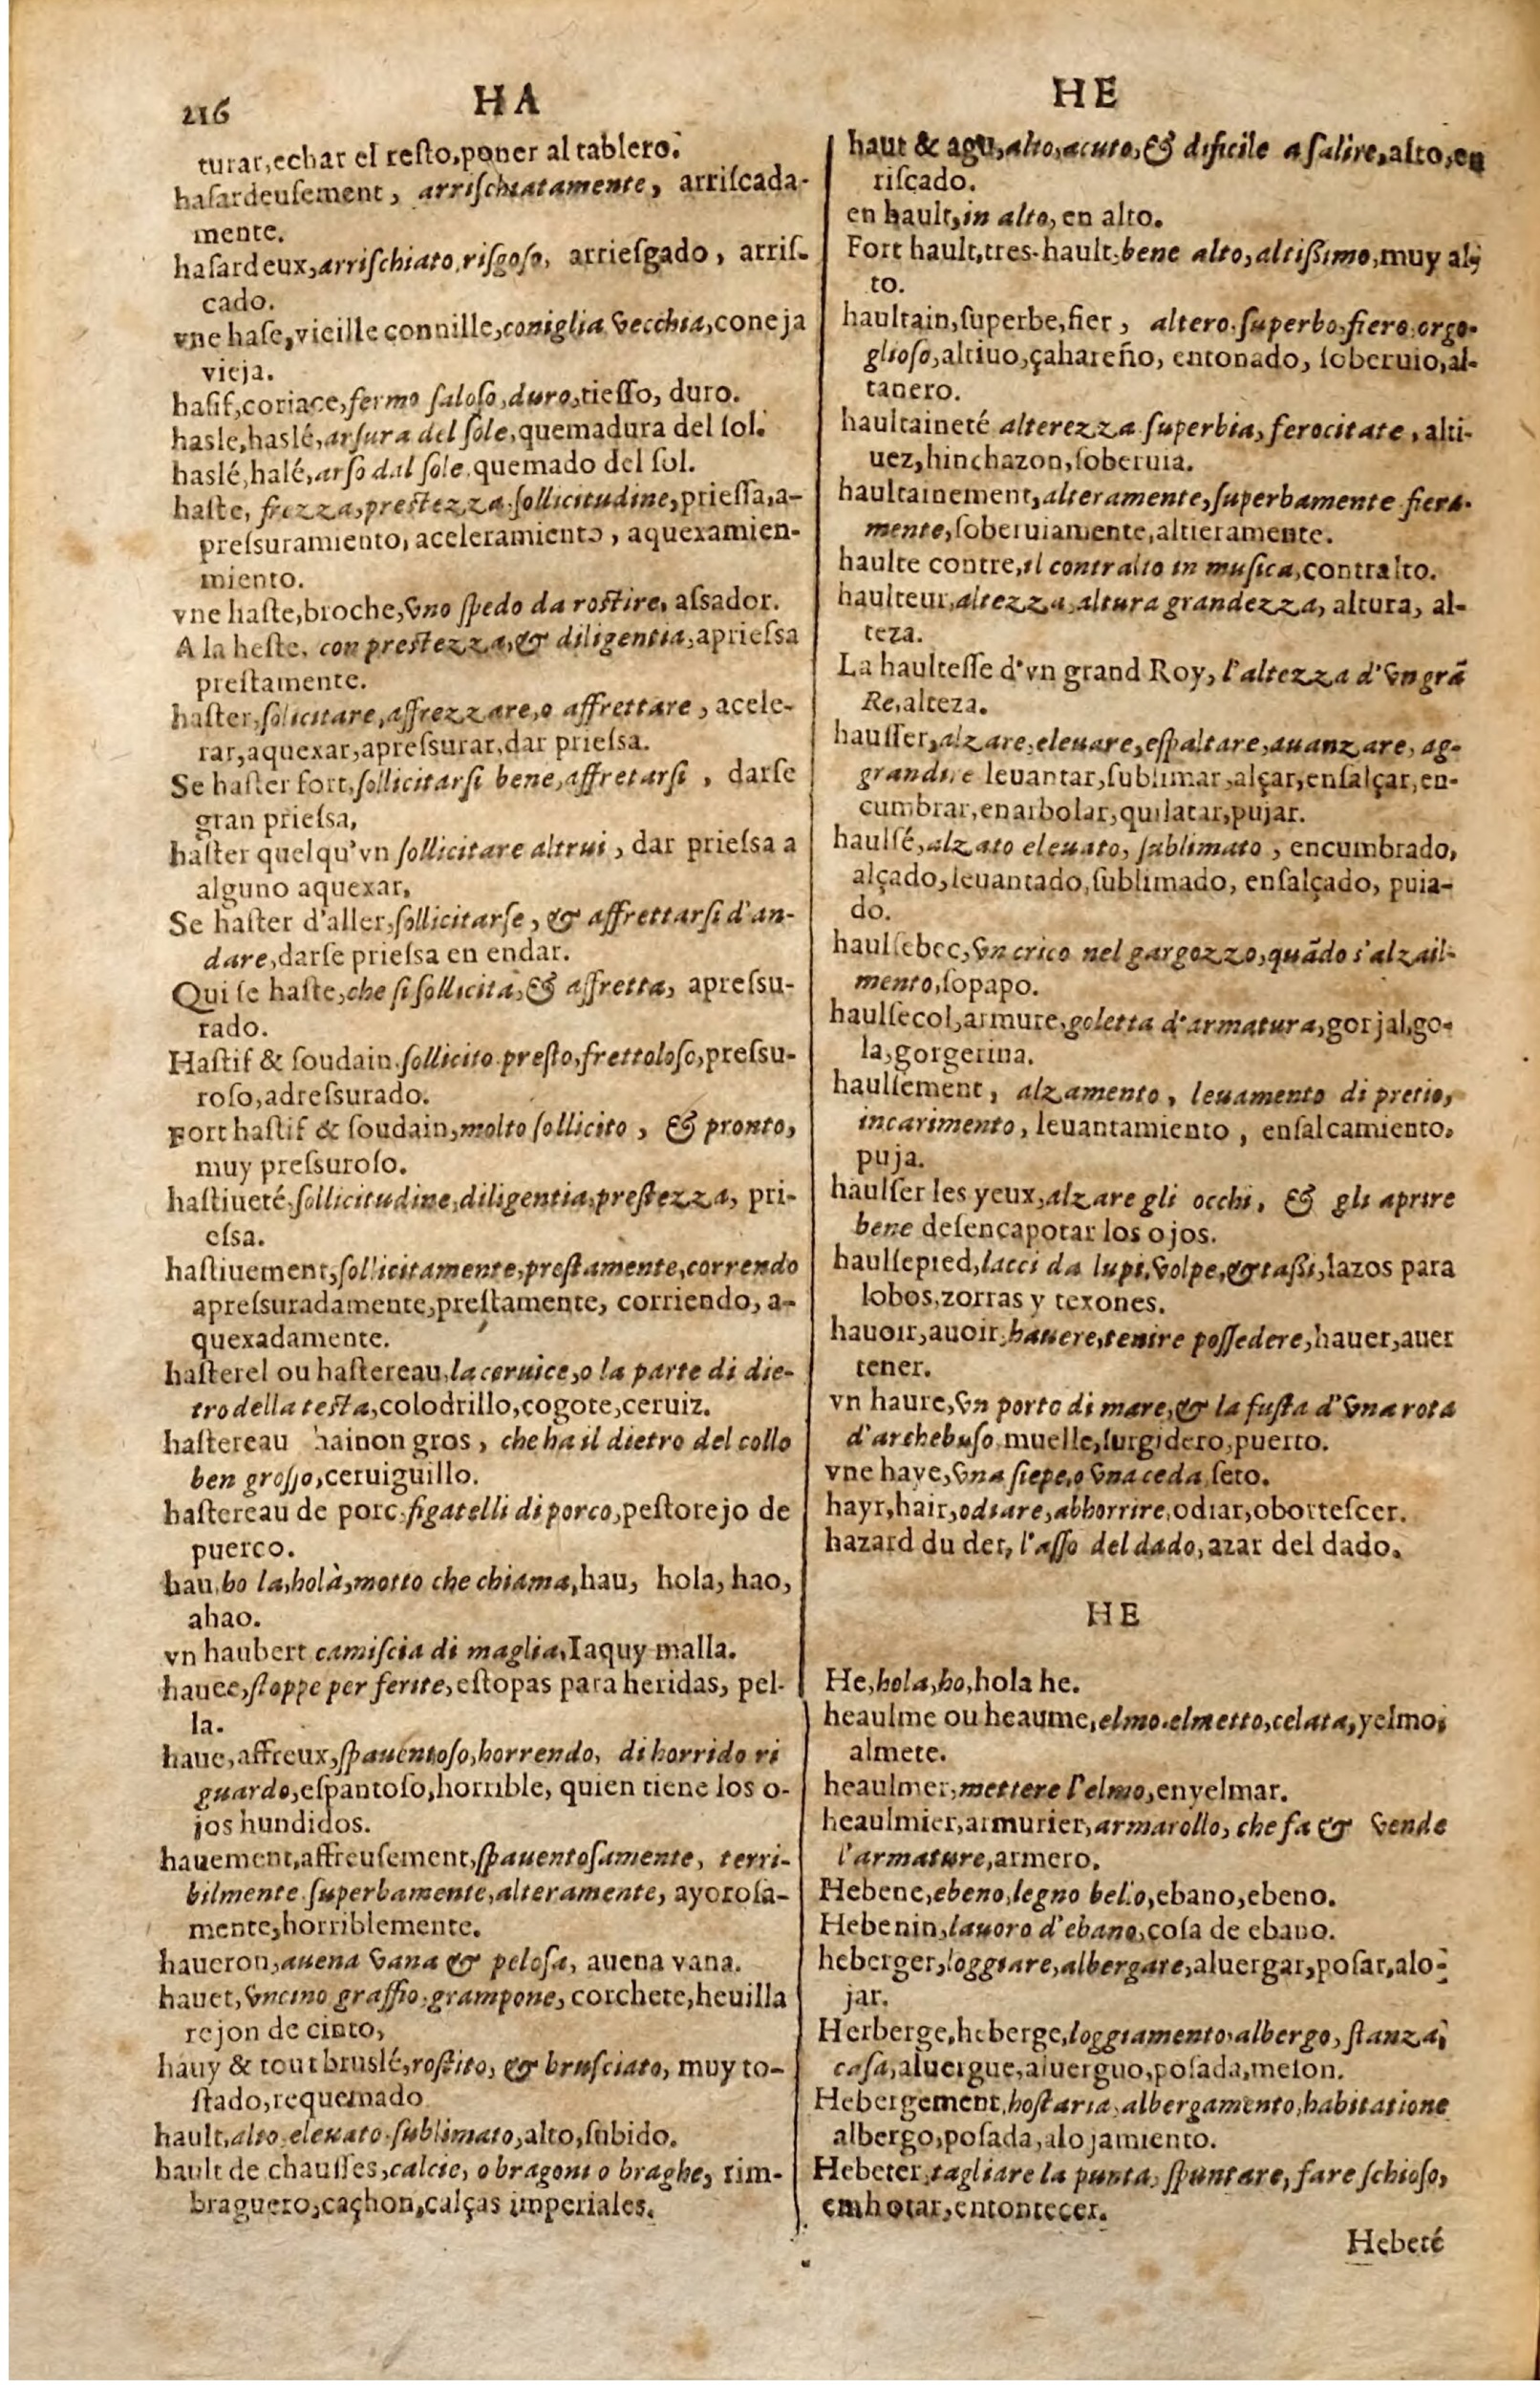 216 HA HE
turar,echar el reſto,poner al tablero.
haſardeuſement, arriſchiatamente, arriſcada-
mente.
haſardeux,arriſchiato,riſgoſo, arrieſgado, arriſ-
cado.
vne haſe,vieille connille,coniglia vecchia,coneja
vieja.
haſif,coriace,fermo ſaloſo,duro,tieſſo, duro.
hasle,haslé,arſura del ſole,quemadura del ſol.
haslé,halé,arſo dal ſole,quemado del ſol.
haſte, frezza,preſtezza,ſollicitudine,prieſſa,a-
preſsuramiento, aceleramiento, aquexamien-
miento.
vne haſte,broche,vno ſpedo da roſtire, aſsador.
A la heſte, con preſtezza,& diligentia,aprieſsa
preſtamente.
haſter,ſolicitare,affrezzare,o affrettare, acele-
rar,aquexar,apreſsurar,dar prieſsa.
Se haſter fort,ſollicitarſi bene,affretarſi, darſe
gran prieſsa,
haſter quelqu'vn ſollicitare altrui, dar prieſsa a
alguno aquexar,
Se haſter d'aller,ſollicitarſe, & affrettarſi d'an-
dare,darſe prieſsa en endar.
Qui ſe haſte,che ſi ſollicita,& affretta, apreſsu-
rado.
Haſtif & ſoudain,ſollicito preſto,frettoloſo,preſsu-
roſo,adreſsurado.
Fort haſtif & ſoudain,molto ſollicito, & pronto,
muy preſsuroſo.
haſtiueté,ſollicitudine,diligentia,preſtezza, pri-
eſsa.
haſtiuement,ſollicitamente,preſtamente,correndo
apreſsuradamente,preſtamente, corriendo, a-
quexadamente.
haſterel ou haſtereau,la ceruice,o la parte di die-
tro della teſta,colodrillo,cogote,ceruiz.
haſtereau hainon gros, che ha il dietro del collo
ben groſſo,ceruiguillo.
haſtereau de porc,figatelli di porco,peſtorejo de
puerco.
hau,ho la,holà,motto che chiama,hau, hola, hao,
ahao.
vn haubert camiſcia di maglia,Iaquy malla.
hauee,ſtoppe per ferite,eſtopas para heridas, pel-
la.
haue,affreux,ſpauentoſo,horrendo, di horrido ri
guardo,eſpantoſo,horrible, quien tiene los o-
jos hundidos.
hauement,affreuſement,ſpauentoſamente, terri-
bilmente ſuperbamente,alteramente, ayoroſa-
mente,horriblemente.
haueron,auena vana & peloſa, auena vana.
hauet,vncino graffio,grampone, corchete,heuilla
rejon de cinto,
hauy & tout bruslé,roſtito, & bruſciato, muy to-
ſtado,requemado
hault,alto eleuato ſublimato,alto,ſubido.
hault de chauſſes,calcie, o bragoni o braghe, tim-
braguero,caçhon,calças imperiales.
haut & agu,alto,acuto,& dificile a ſalire,alto,en
riſcado.
en hault,in alto, en alto.
Fort hault,tres-hault,bene alto,altißimo,muy al-
to.
haultain,ſuperbe,fier, altero ſuperbo,fiero,orgo-
glioſo,altiuo,çahareño, entonado, ſoberuio,al-
tanero.
haultaineté alterezza ſuperbia, ferocitate, alti-
uez,hinchazon,ſoberuia.
haultainement,alteramente,ſuperbamente fiera-
mente,ſoberuiamente,altieramente.
haulte contre,il contralto in muſica,contralto.
haulteur,altezza,altura grandezza, altura, al-
teza.
La haulteſſe d'vn grand Roy, l'altezza d'vn grã
Re,alteza.
hauſſer,alzare,eleuare,eſpaltare,auanzare, ag-
grandire leuantar,ſublimar,alçar,enſalçar,en-
cumbrar,enarbolar,quilatar,pujar.
haulſé,alzato eleuato, ſublimato, encumbrado,
alçado,leuantado,ſublimado, enſalçado, puia-
do.
haulſebec,vn crico nel gargozzo,quãdo s'alza il-
mento,ſopapo.
haulſecol,armure,goletta d'armatura,gorjal,go-
la,gorgerina.
haulſement, alzamento, leuamento di pretio,
incarimento, leuantamiento, enſalcamiento,
puja.
haulſer les yeux,alzare gli occhi, & gli aprire
bene deſencapotar los ojos.
haulſepied,lacci da lupi,volpe,& taßi,lazos para
lobos,zorras y texones.
hauoir,auoir,hauere,tenire poſſedere,hauer,auer
tener.
vn haure,vn porto di mare,& la fuſta d'vna rota
d'archebuſo muelle,ſurgidero,puerto.
vne haye,vna ſiepe,o vna ceda ſeto.
hayr,hair,odiare,abhorrire,odiar,oborreſcer.
hazard du det, l'aſſo del dado,azar del dado.
HE
He,hola,ho,hola he.
heaulme ou heaume,elmo,elmetto,celata,yelmo,
almete.
heaulmer,mettere l'elmo,enyelmar.
heaulmier,armurier,armarollo, che fa & vende
l'armature,armero.
Hebene,ebeno,legno bello,ebano,ebeno.
Hebenin,lauoro d'ebano,coſa de ebano.
heberger,loggiare,albergare,aluergar,poſar,alo-
jar.
Herberge,heberge,loggiamento,albergo,ſtanza,
caſa,aluergue,aluerguo,poſada,meſon.
Hebergement,hoſtaria,albergamento,habitatione
albergo,poſada,alojamiento.
Hebeter,tagliare la punta, ſpuntare, fare ſchioſo,
embotar,entontecer.
Hebeté